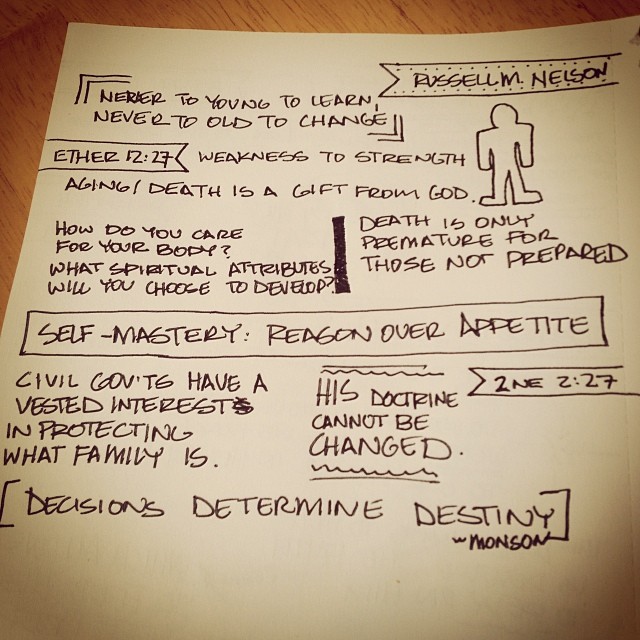 RUSSELL M. NELSON
NEVER TO YOUNG TO LEARN,
NEVER TO OLD TO CHANGE
ETHER 12:27 WEAKNESS TO STRENGTH
AGING/DEATH IS A GIFT FROM GOD.
HOW DO YOU CARE
FOR YOUR BODY?
WHAT SPIRITUAL ATTRIBUTES
WILL YOU CHOOSE TO DEVELOP?
DEATH IS ONLY
PREMATURE FOR
THOSE NOT PREPARED
SELF-MASTERY: REASON OVER APPETITE
CIVIL GOV'TS HAVE A
VESTED INTERESTS
IN PROTECTING
WHAT FAMILY IS.
HIS DOCTRINE
CANNOT BE
CHANGED.
2NE 2:27
[DECISIONS DETERMINE DESTINY]
~MONSON